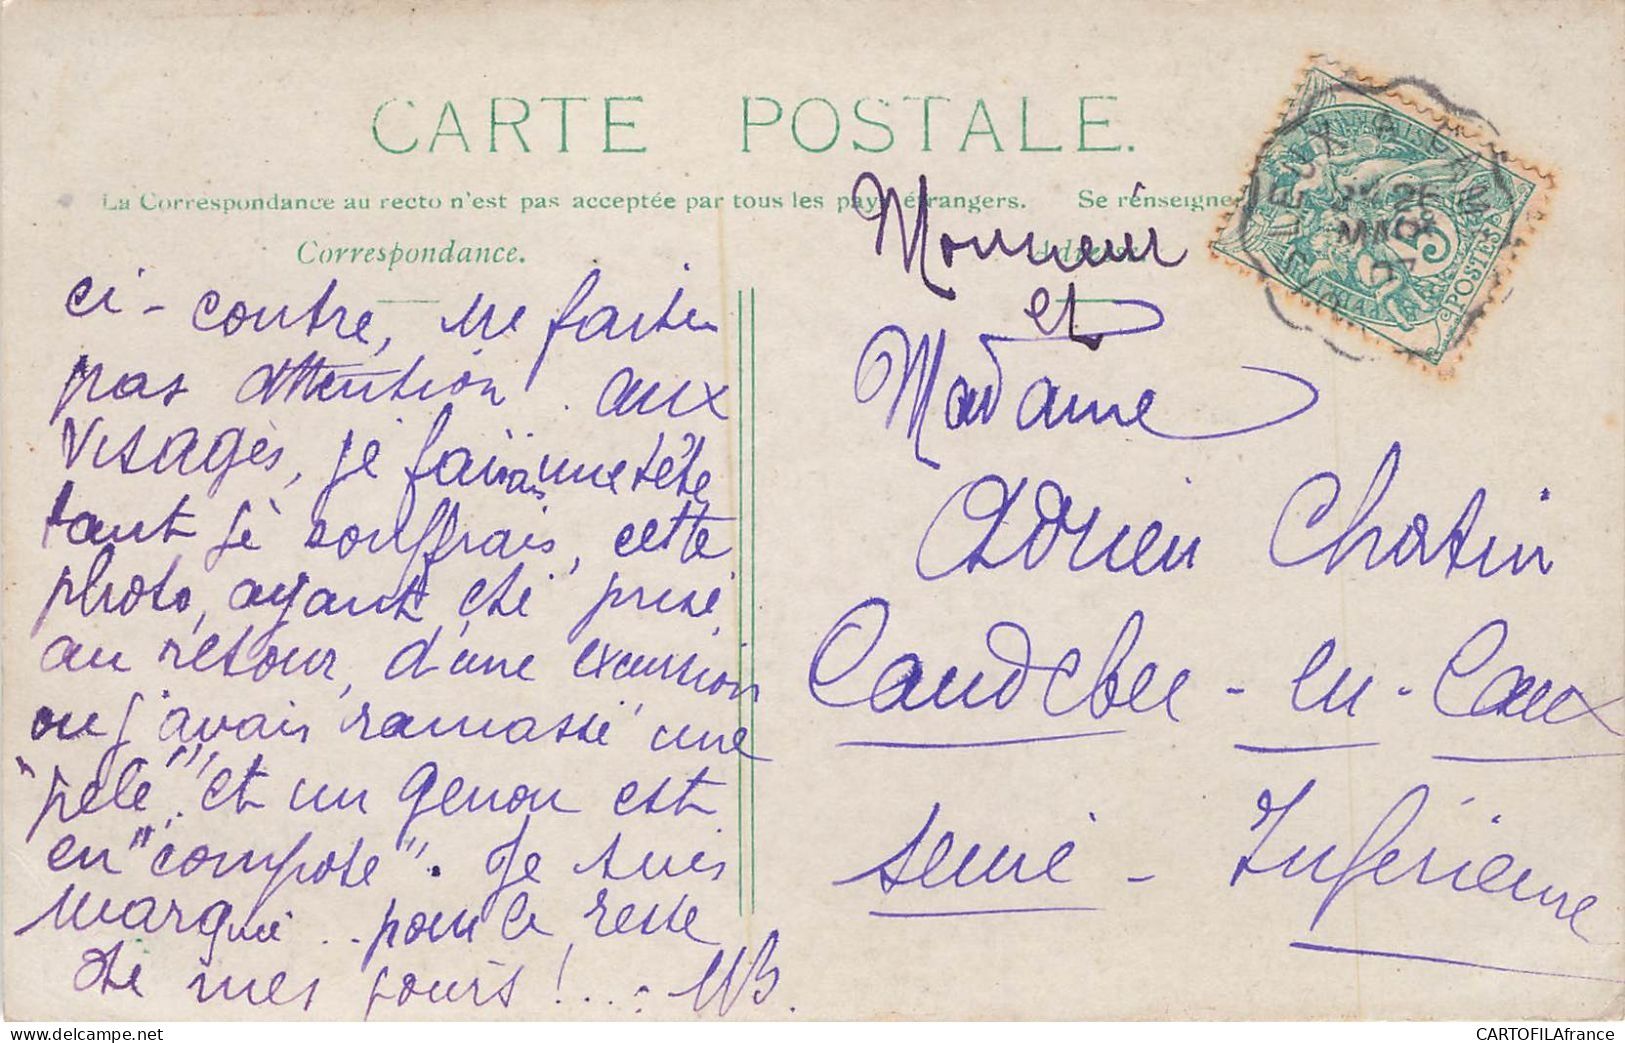 CARTE POSTALE.
La Correspondance au recto n'est pas acceptée par tous les pays étrangers. Se renseigner
Correspondance.
ci-contre, ne faites
pas attention aux
visages, je faisais une tête
tant je souffrais, cette
photo, ayant été prise
au retour, d'une excursion
ou j'avais ramassé une
"pele", et un genou est
en "compote". Je suis
marqué.. pour le reste
de mes jours!... MB.
Monsieur
et
Madame
Adrien Chatin
Caudebec-en-Caux
Seine-Inférieure
5
POSTES
CARTOFILAfrance